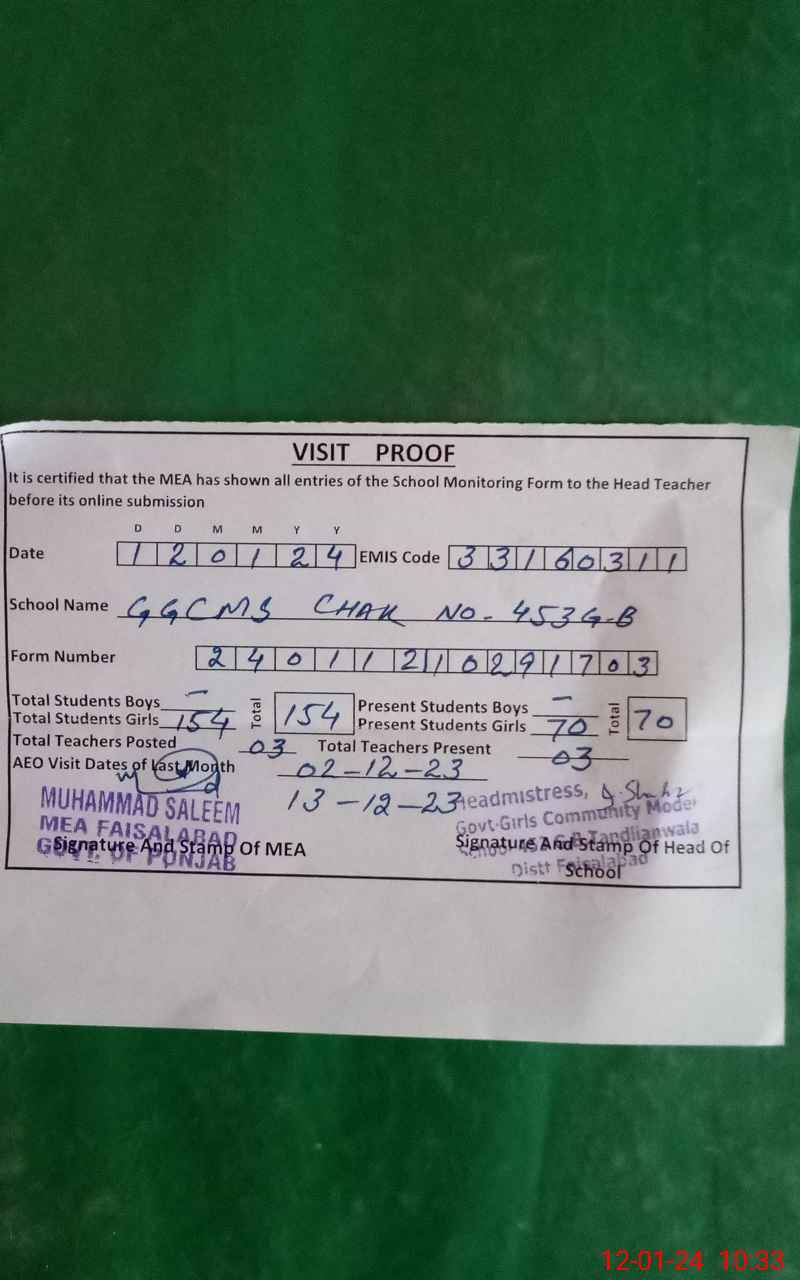 VISIT PROOF
It is certified that the MEA has shown all entries of the School Monitoring Form to the Head Teacher
before its online submission
D D M M Y Y
Date 1 2 0 1 2 4 EMIS Code 3 3 1 6 0 3 1 1
School Name GGCMS CHAK NO- 453 G-B
Form Number 2 4 0 1 1 2 1 0 2 9 1 7 0 3
Total Students Boys — Total 154 Present Students Boys — Total 70
Total Students Girls 154 Present Students Girls 70
Total Teachers Posted 03 Total Teachers Present 03
AEO Visit Dates of Last Month 02-12-23
13-12-23
MUHAMMAD SALEEM
MEA FAISALABAD
GOVT. OF PUNJAB
Signature And Stamp Of MEA
Headmistress,
Govt-Girls Community Model
School Tandlianwala
Distt Faisalabad
Signature And Stamp Of Head Of
School
12-01-24 10:33